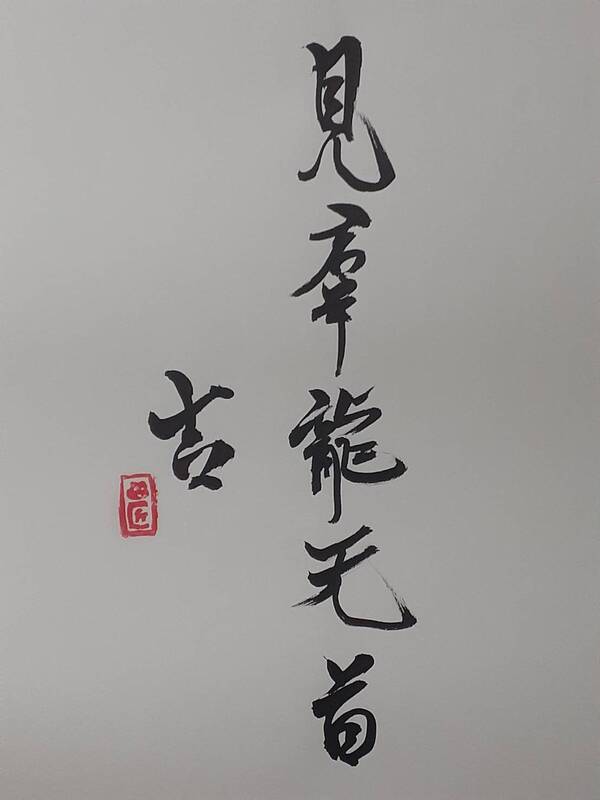 見羣龍无首
吉